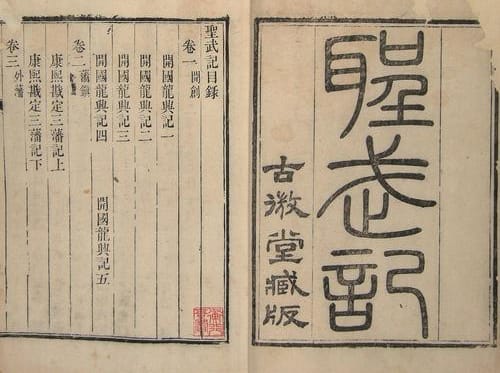 聖武記
古微堂藏版
聖武記目錄
卷一 開創
開國龍興記一
開國龍興記二
開國龍興記三
開國龍興記四 開國龍興記五
卷二 藩鎮
康熙戡定三藩記上
康熙戡定三藩記下
卷三 外藩